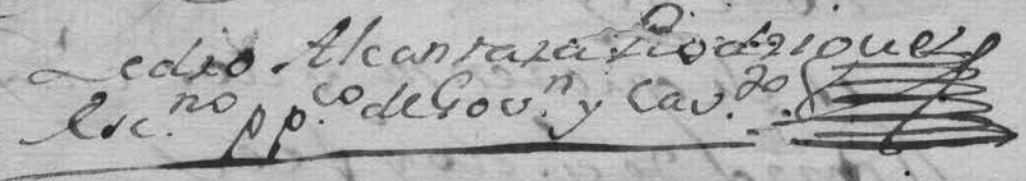 Pedro Alcantara Rodriguez
Esc.no pp.co de Gov.n y Cav.do